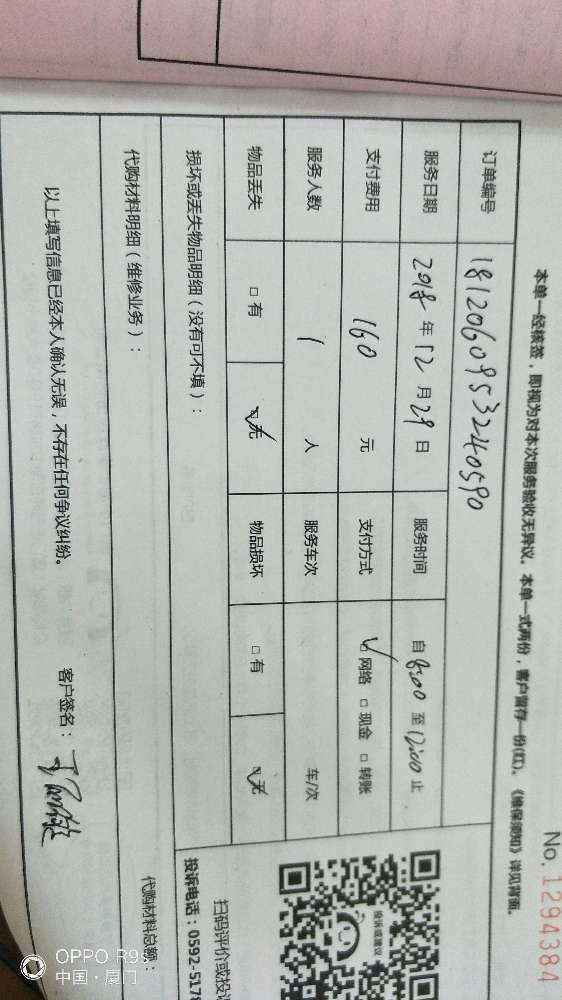 No. 1294384
本单一经核签，即视为对本次服务验收无异议。本单一式两份，客户留存一份(红)。《维保须知》详见背面。
订单编号 18120609532240590
服务日期 2018 年 12 月 29 日 服务时间 自 8:00 至 12:00 止
支付费用 160 元 支付方式 ☑ 网络 □ 现金 □ 转账
服务人数 1 人 服务车次 车/次
物品丢失 □ 有 ☑ 无 物品损坏 □ 有 ☑ 无
损坏或丢失物品明细（没有可不填）：
代购材料明细（维修业务）： 代购材料总额：
以上填写信息已经本人确认无误，不存在任何争议纠纷。 客户签名：
投诉或建议
扫码评价或投
投诉电话：0592-5178
OPPO R9s
中国·厦门